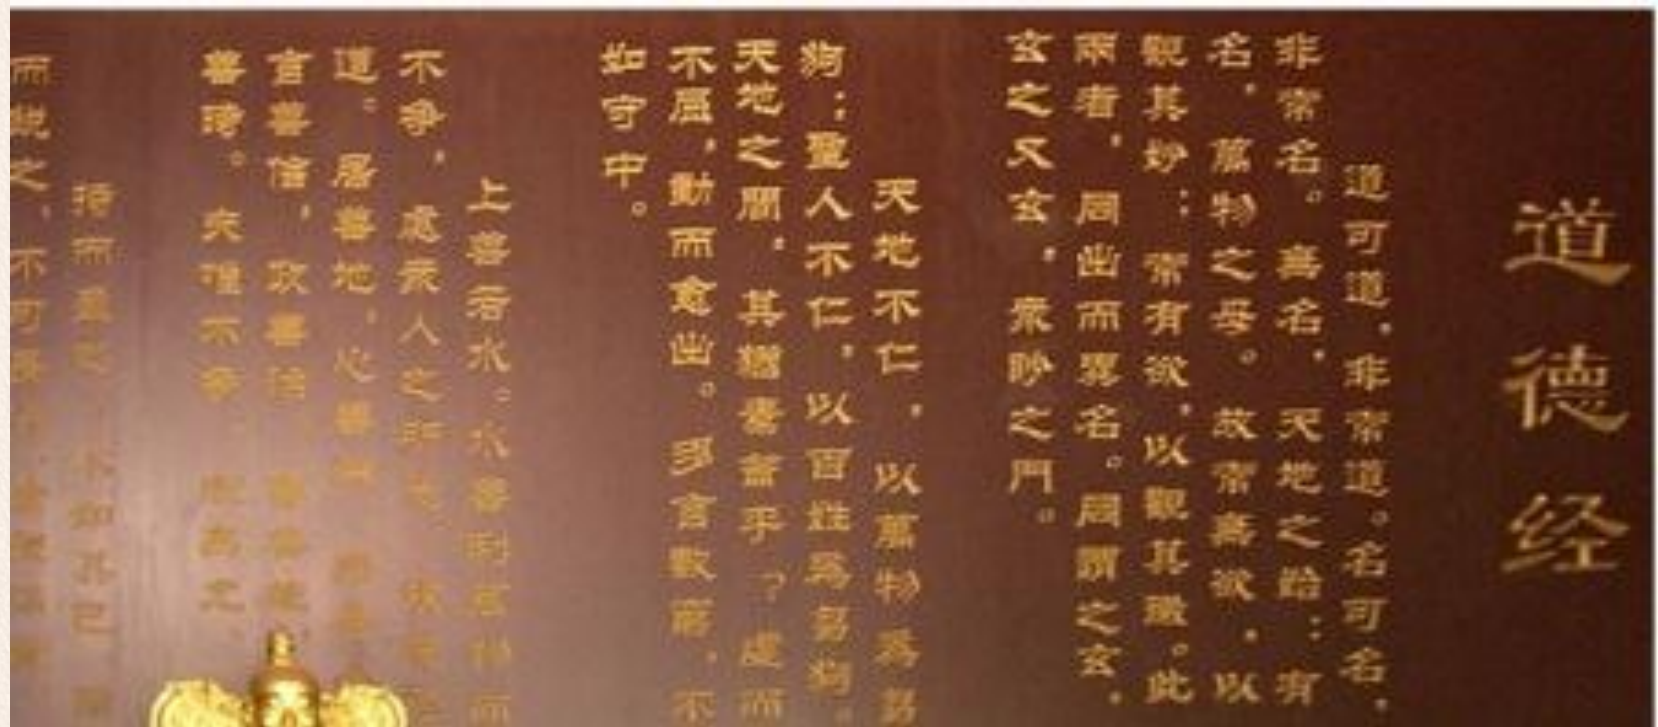 道德经
道可道,非常道。名可名,
非常名。無名,天地之始;有
名,萬物之母。故常無欲,以
觀其妙;常有欲,以觀其徼。此
兩者,同出而異名。同謂之玄,
玄之又玄,衆妙之門。
天地不仁,以萬物為芻
狗;聖人不仁,以百姓爲芻狗。
天地之間,其猶橐龠乎?虛而
不屈,動而愈出。多言數窮,不
如守中。
上善若水。水善利萬物而
不争,處衆人之所惡,故
道。居善地,心善淵
言善信,政善治
善時。夫唯不争
持而盈之,不如其已
而銳之,不可長保